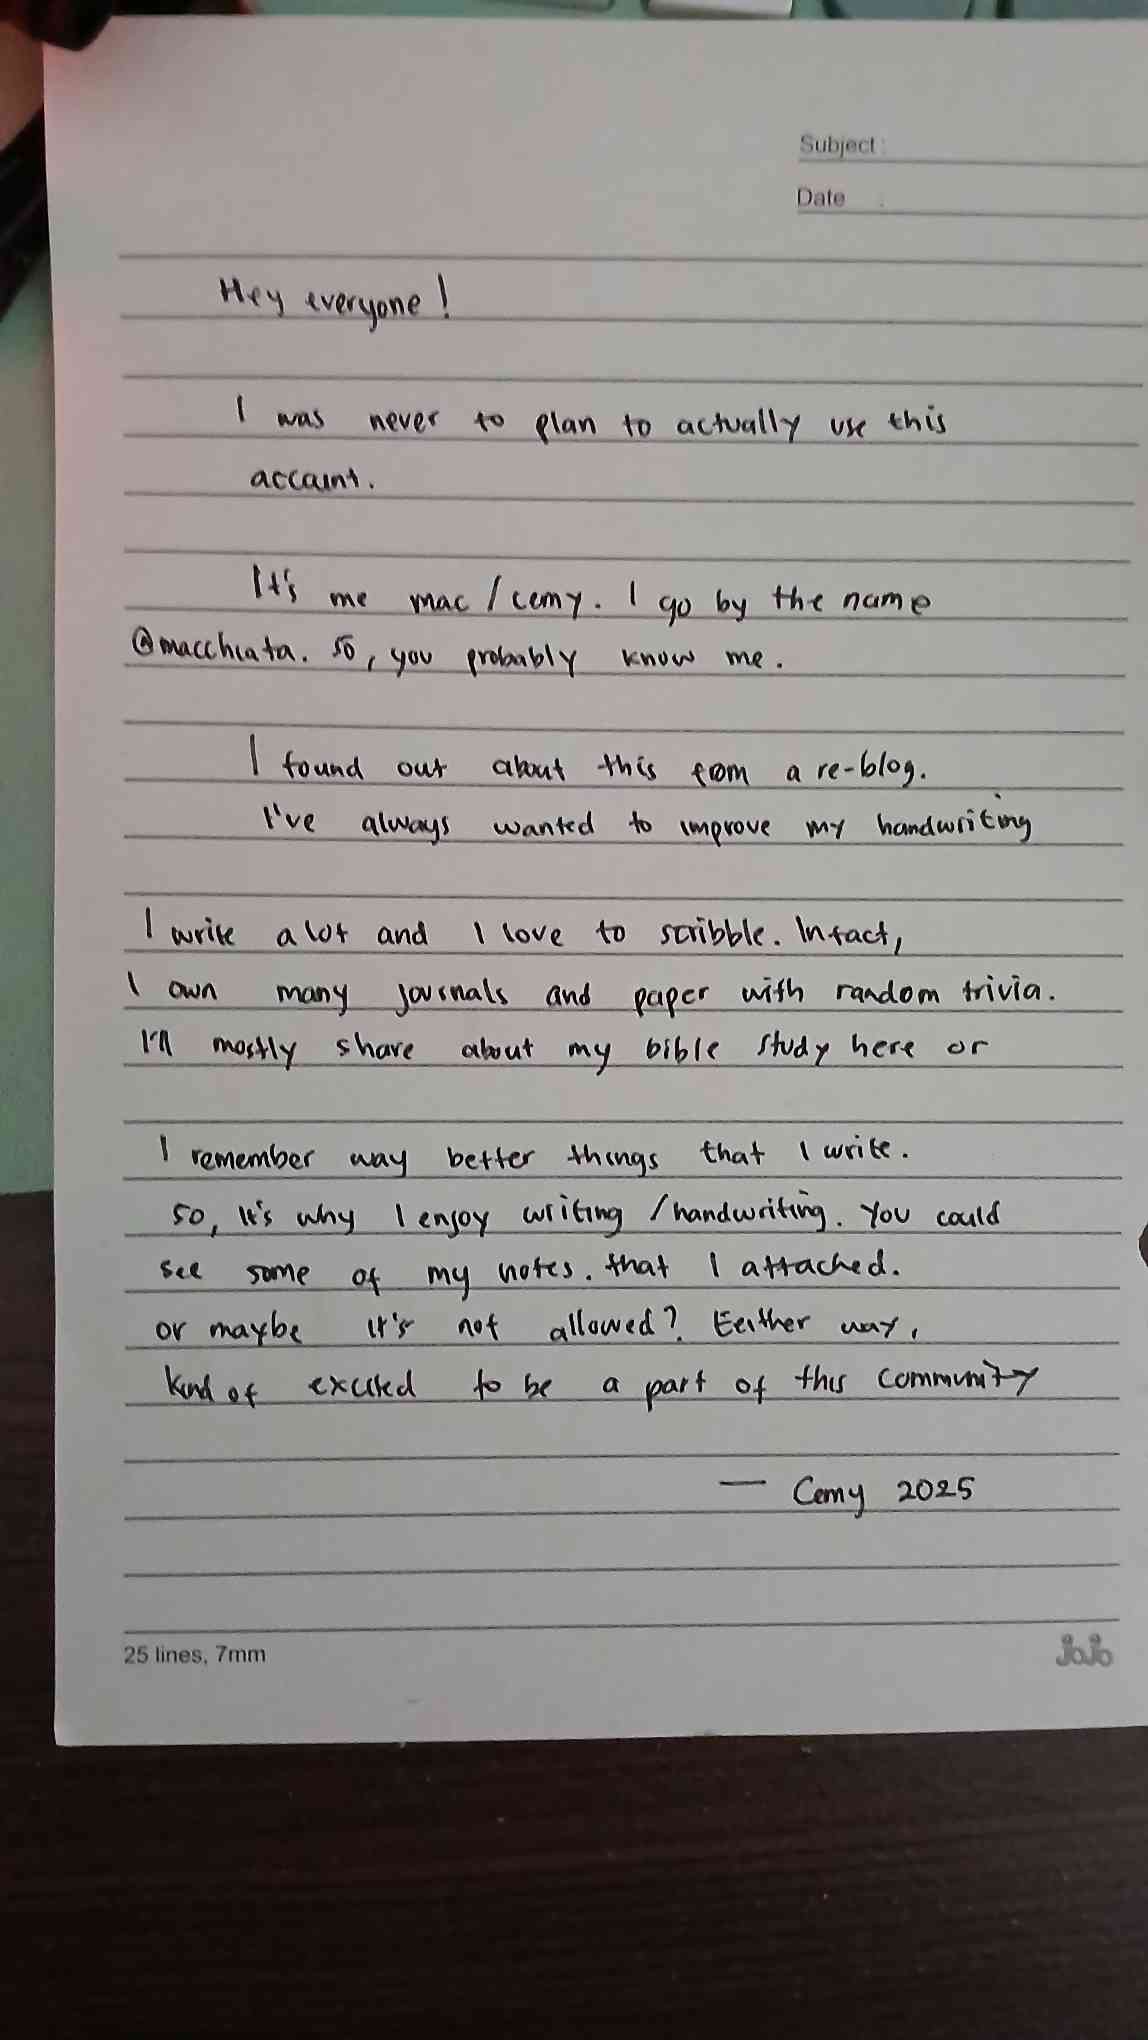 Subject :
Date :
Hey everyone!
I was never to plan to actually use this
account.
It's me mac/cemy. I go by the name
@macchiata. So, you probably know me.
I found out about this from a re-blog.
I've always wanted to improve my handwriting
I write a lot and I love to scribble. Infact,
I own many journals and paper with random trivia.
I'll mostly share about my bible study here or
I remember way better things that I write.
So, it's why I enjoy writing /handwriting. You could
see some of my notes. that I attached.
or maybe it's not allowed? Eeither way,
kind of excited to be a part of this community
— Cemy 2025
25 lines, 7mm
JoJo